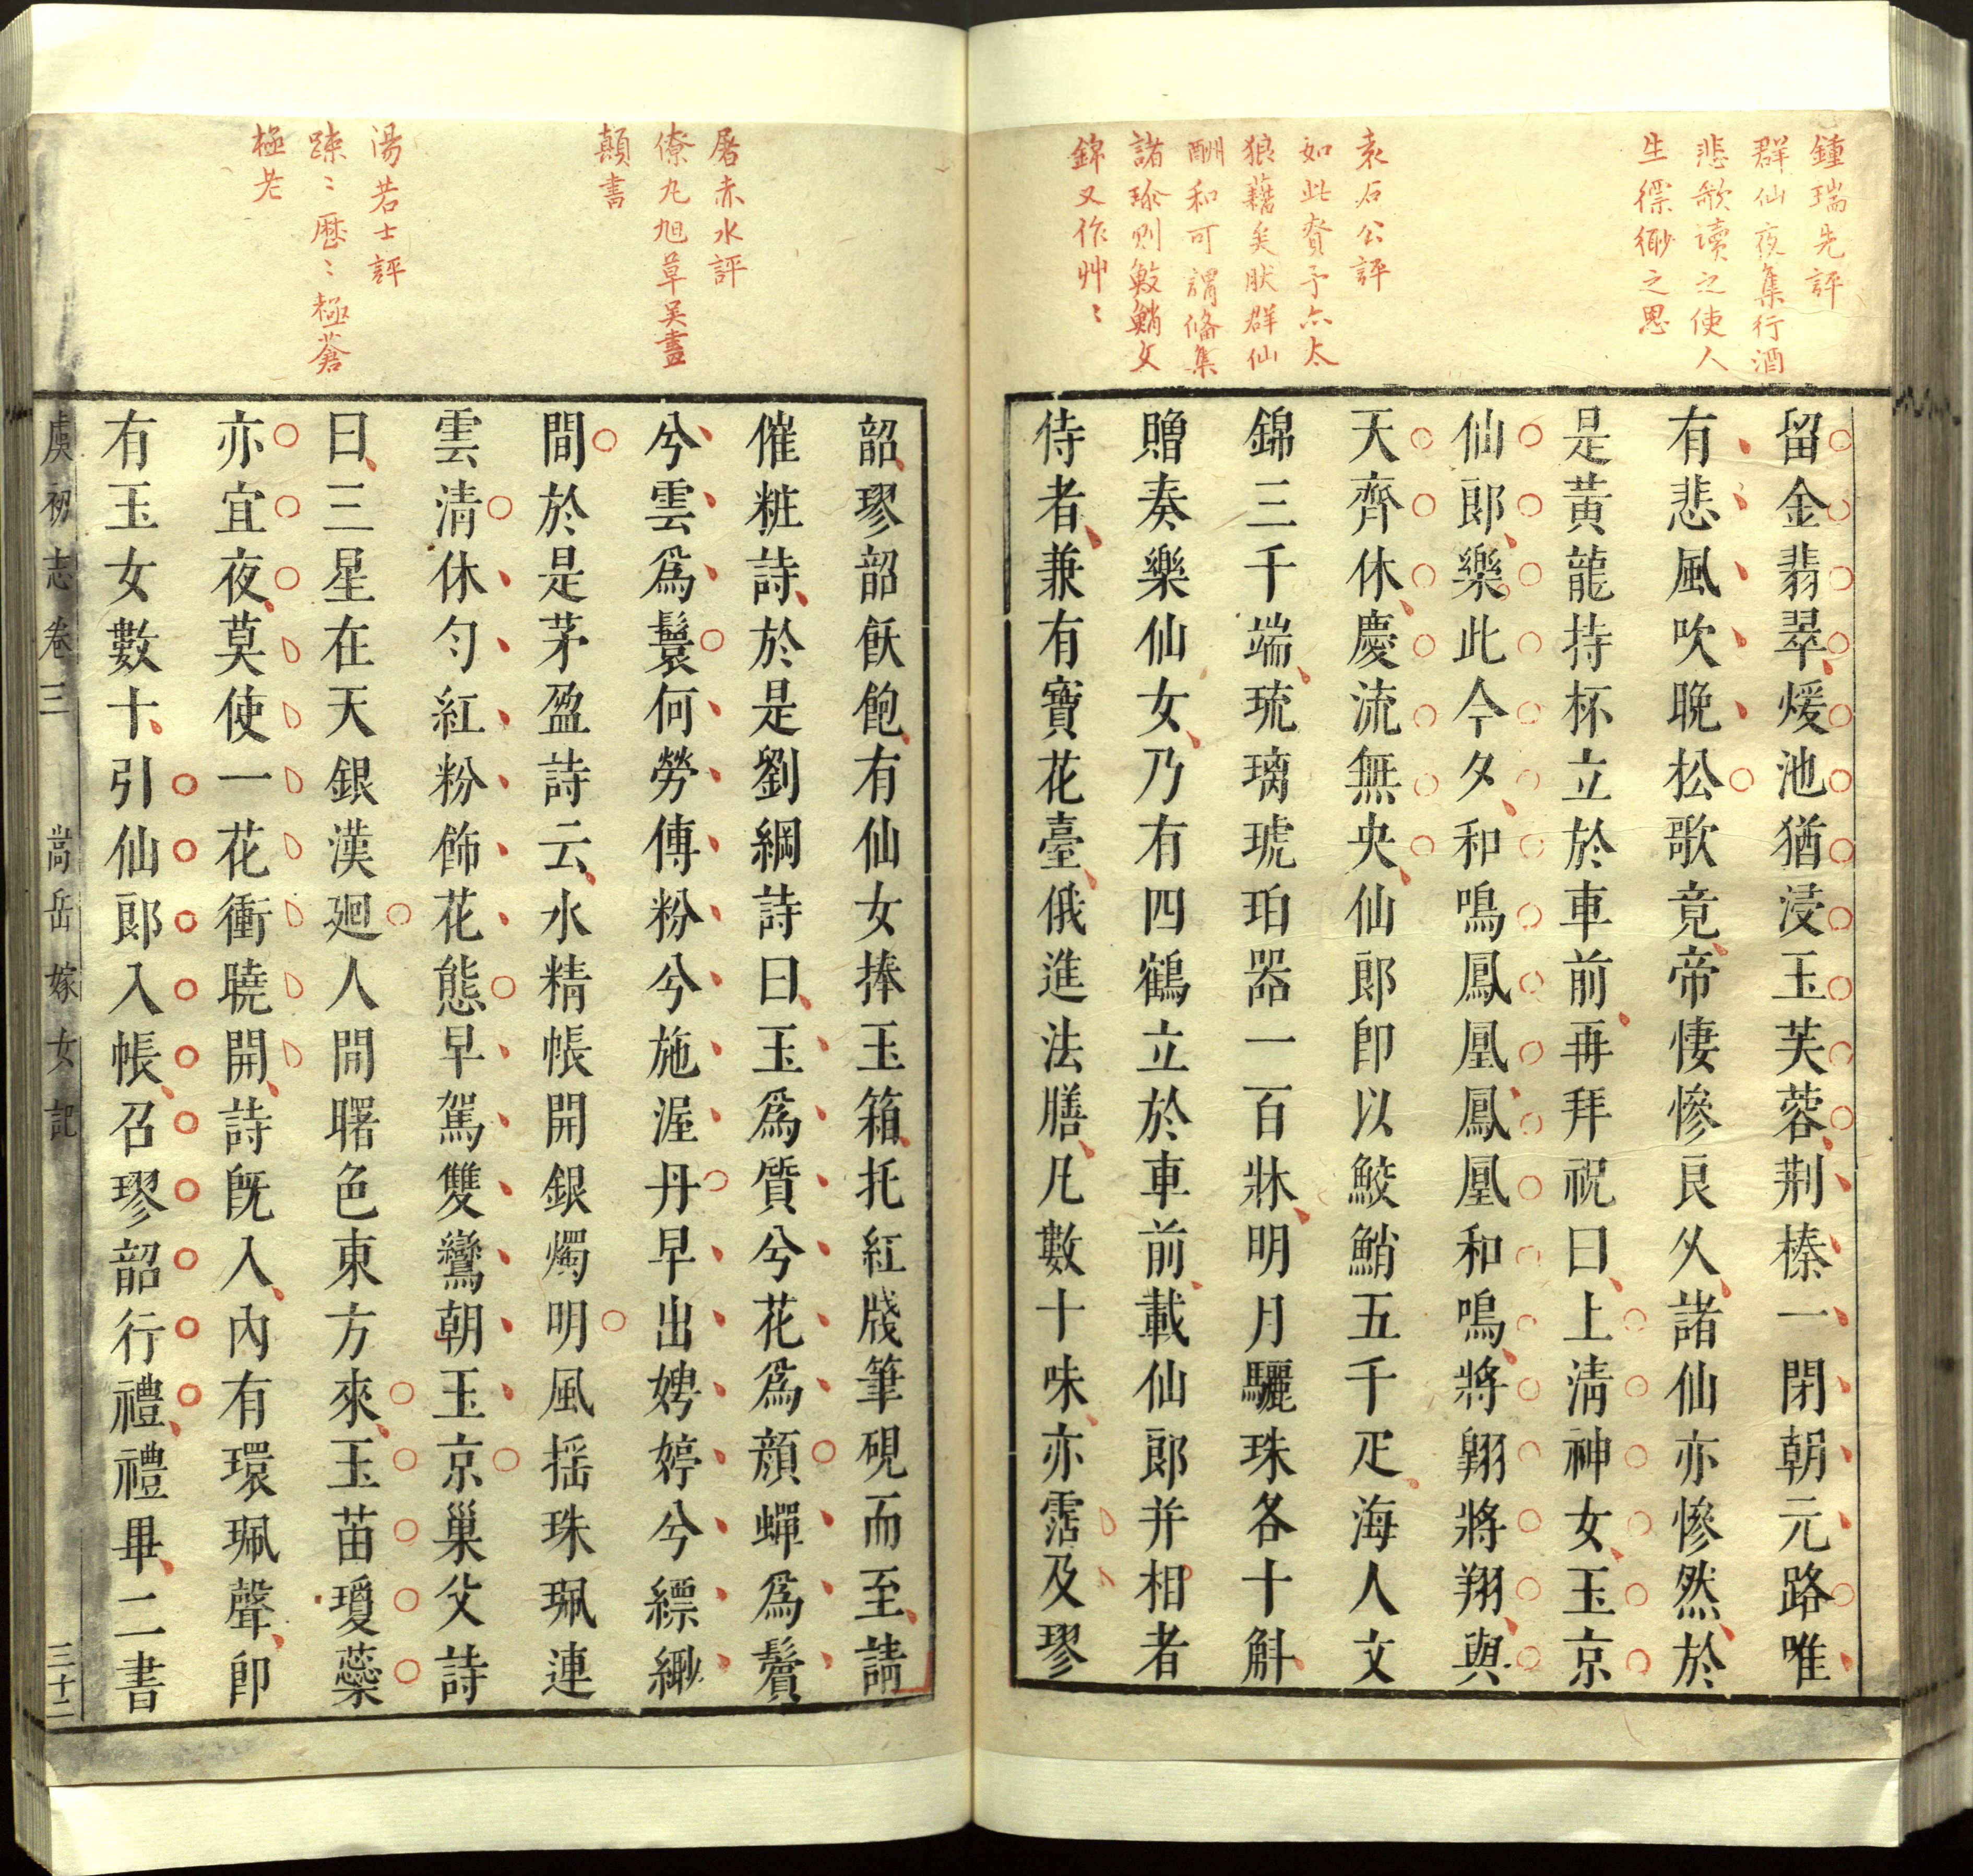 鍾瑞先評
群仙夜集行酒
悲歌讀之使人
生縹緲之思
袁石公評
如此賚予亦太
狼藉矣然群仙
酬和可謂備集
諸珍則鮫鮹文
錦又作艸〻
留金翡翠煖池猶浸玉芙蓉荆榛一閉朝元路唯
有悲風吹晚松歌竟帝悽慘良久諸仙亦慘然於
是黃龍持杯立於車前再拜祝曰上清神女玉京
仙郎樂此今夕和鳴鳳凰鳳凰和鳴將翺將翔與
天齊休慶流無央仙郎即以鮫鮹五千疋海人文
錦三千端琉璃琥珀器一百牀明月驪珠各十斛
贈奏樂仙女乃有四鶴立於車前載仙郎并相者
侍者兼有寶花臺俄進法膳凡數十味亦霑及璆
屠赤水評
僚九旭草吳畫
顛書
湯若士評
踈〻曆〻極蒼
極老
韶璆韶飫飽有仙女捧玉箱托紅牋筆硯而至請
催粧詩於是劉綱詩曰玉爲質兮花爲顏蟬爲鬢
兮雲爲鬟何勞傅粉兮施渥丹早出娉婷兮縹緲
間於是茅盈詩云水精帳開銀燭明風揺珠珮連
雲清休勻紅粉飾花態早駕雙鸞朝玉京巢父詩
曰三星在天銀漢廻人間曙色東方來玉苗瓊蘂
亦宜夜莫使一花衝曉開詩旣入內有環珮聲卽
有玉女數十引仙郎入帳召璆韶行禮禮畢二書
虞初志卷三　嵩岳嫁女記　三十二